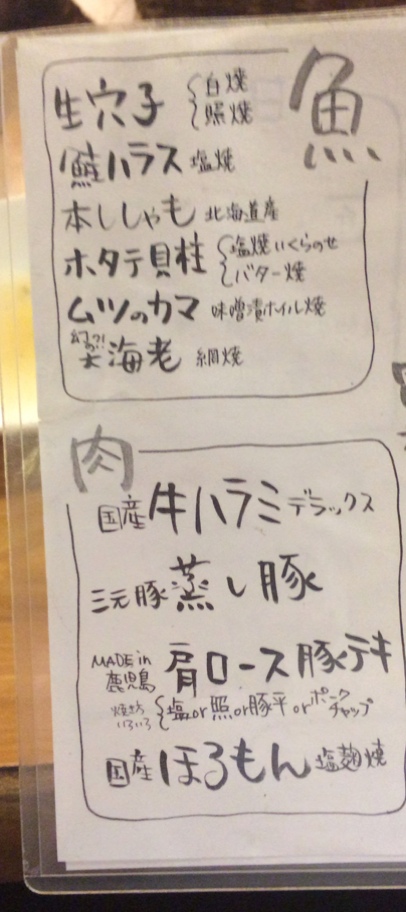 魚
生穴子 白焼
照焼
鮭ハラス 塩焼
本ししゃも 北海道産
ホタテ貝柱 塩焼いくらのせ
バター焼
ムツのカマ 味噌漬ホイル焼
幻の?!
大海老 網焼
肉
国産牛ハラミデラックス
三元豚蒸し豚
MADE in
鹿児島 肩ロース豚テキ
焼方
いろいろ 塩or照or豚平orポークチャップ
国産ほるもん塩麹焼